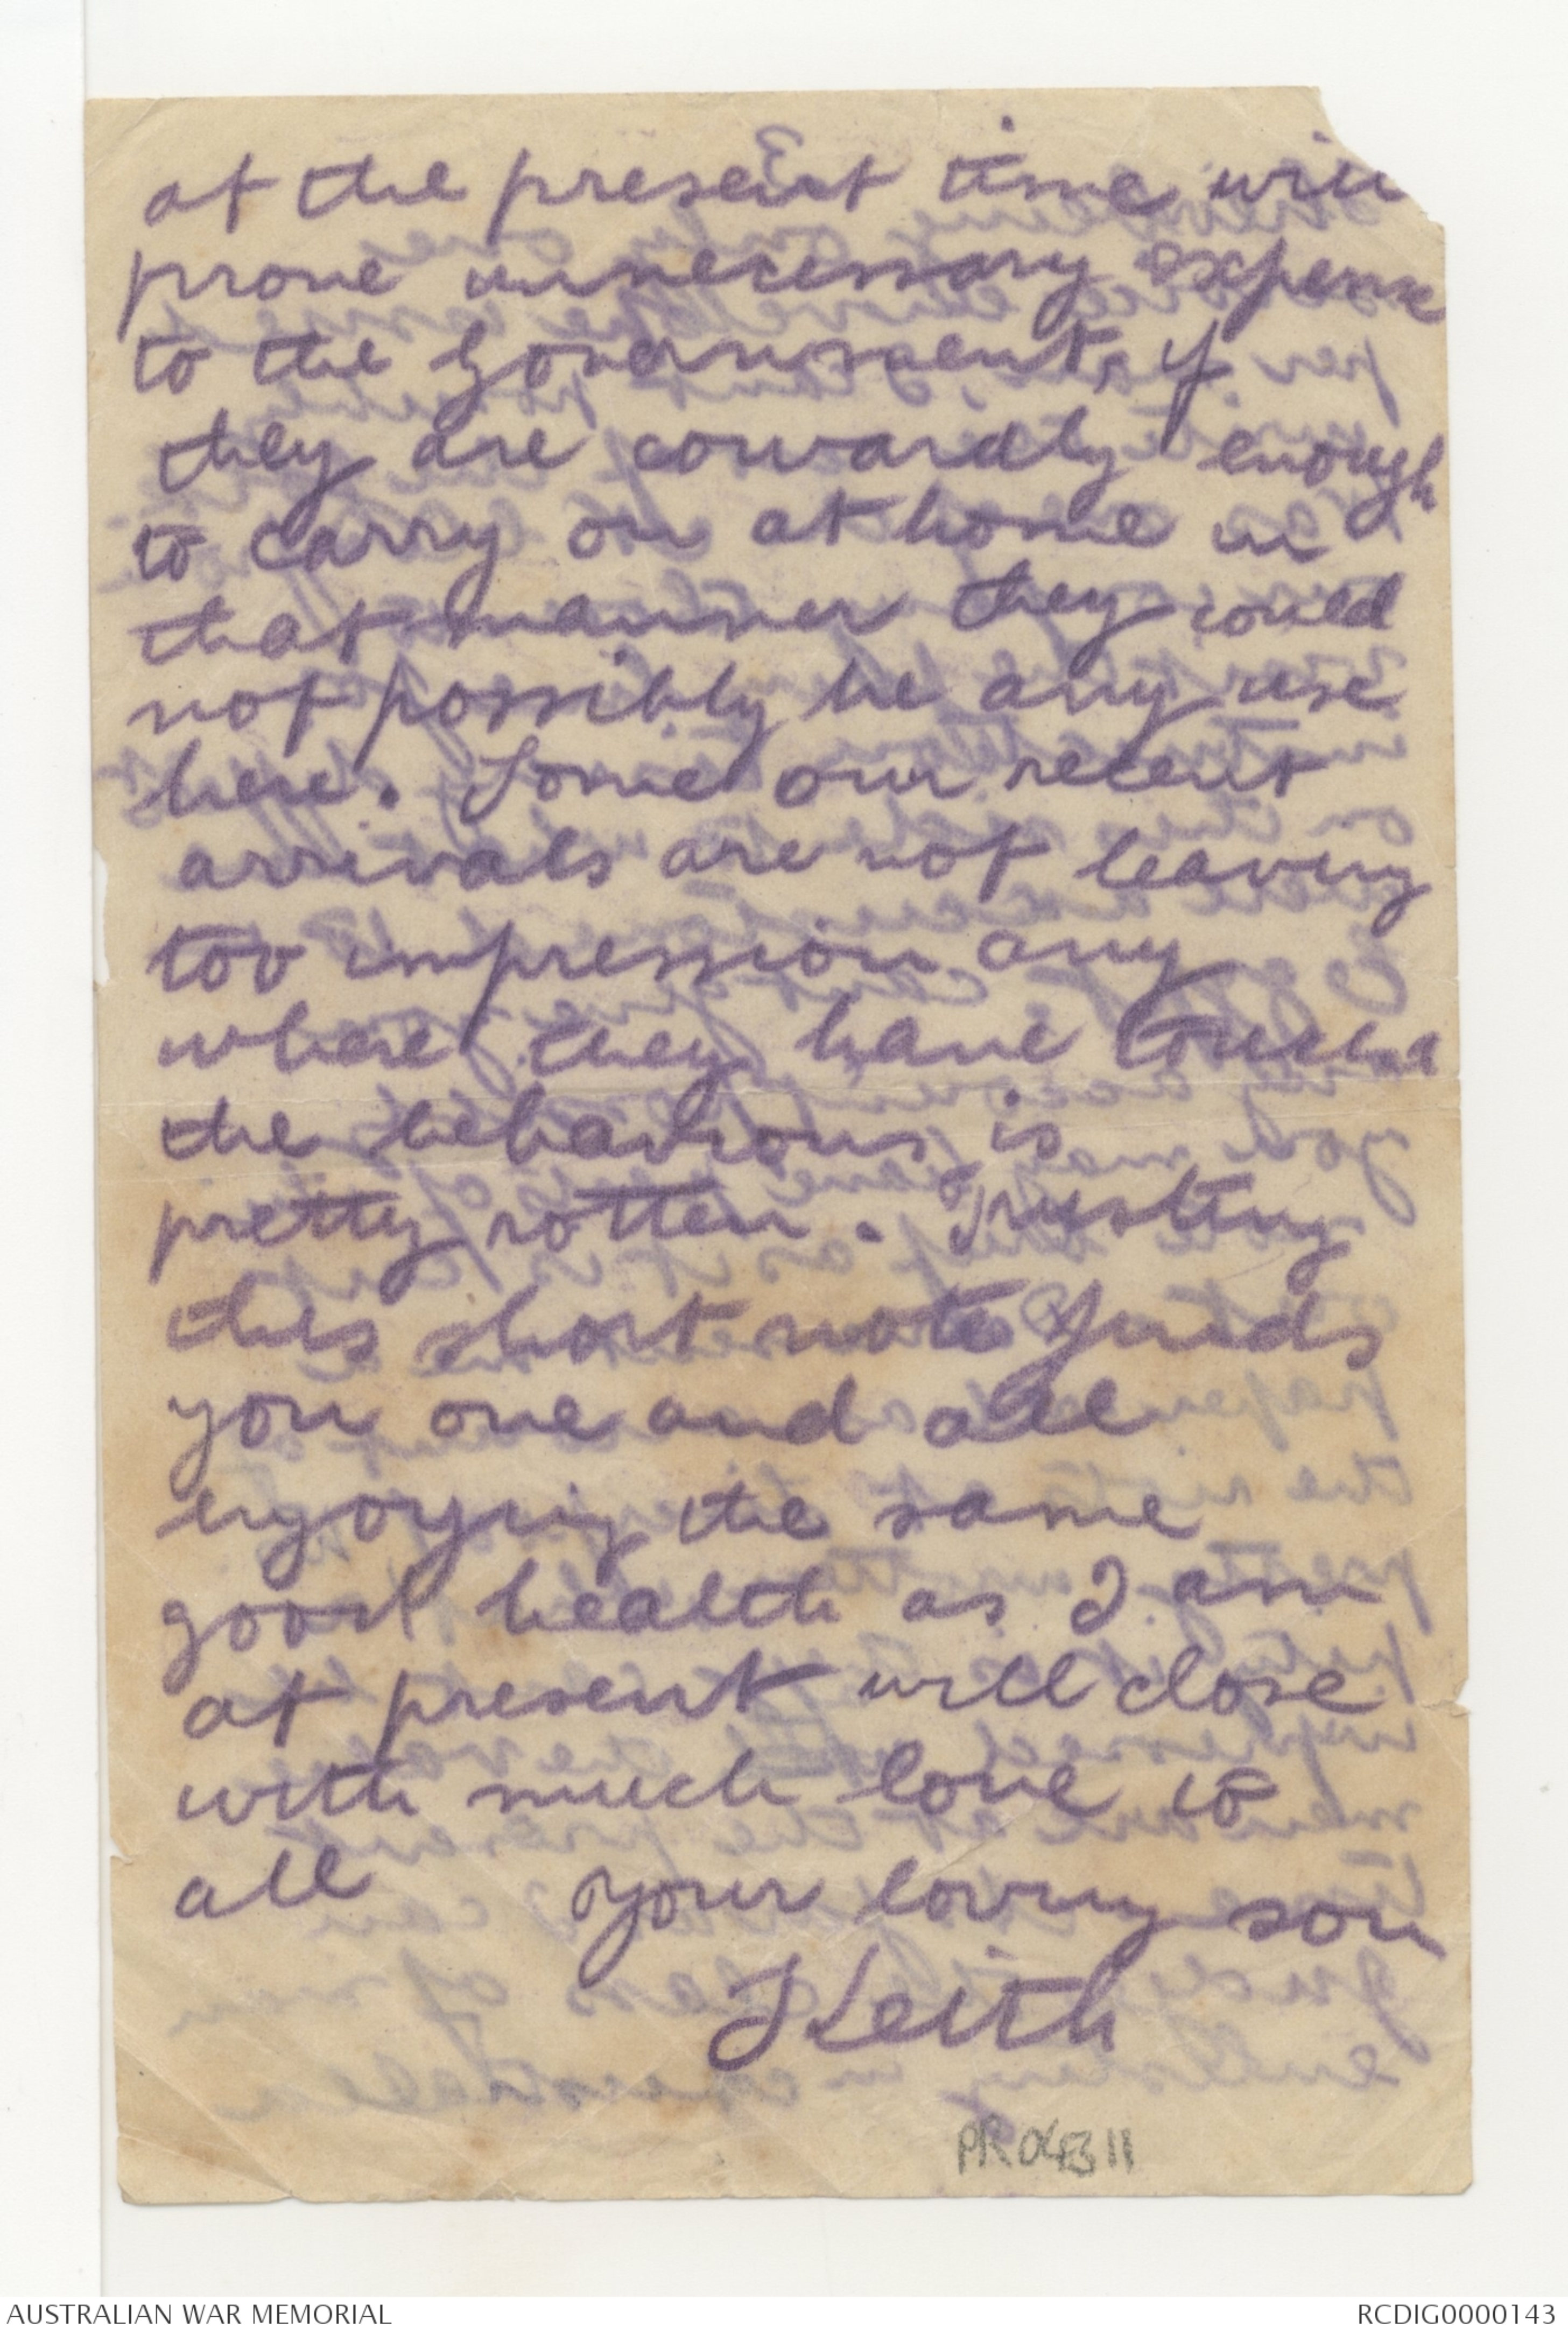 at the present time will
prove unnecessary expense
to the Government, if
they are cowardly enough
to carry on at home in
that manner they could
not possibly be any use
here. Some our recent
arrivals are not leaving
too impression any
where they have touched
the behaviour is
pretty rotten. Trusting
this short note finds
you one and all
enjoying the same
good health as I am
at present will close
with much love to
all your loving son
Keith
PR04311
AUSTRALIAN WAR MEMORIAL
RCDIG0000143